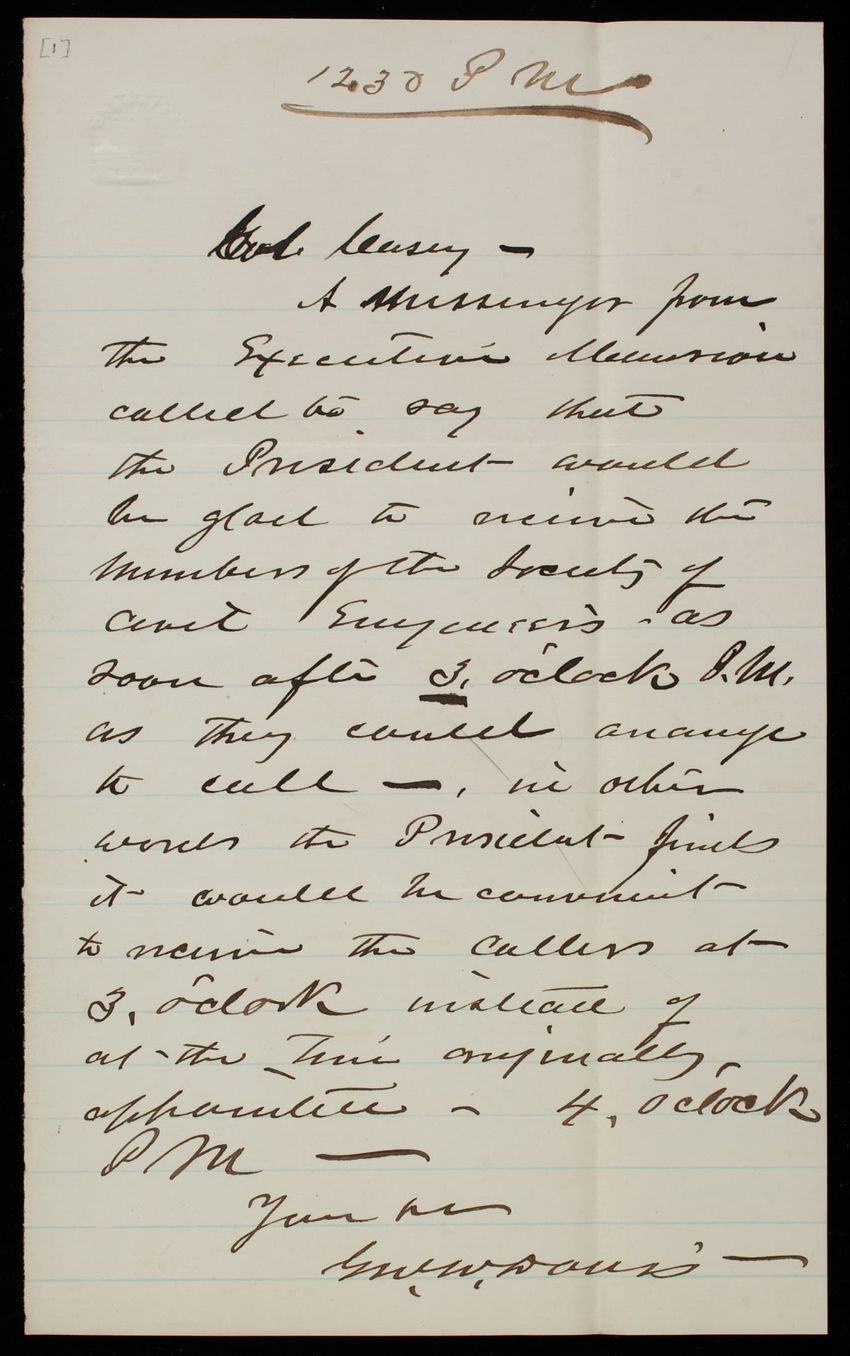 [1]
1230 P M
Col. Casey —
A Messenger from
the Executive Mansion
called to say that
the President would
be glad to receive the
members of the Society of
Civil Engineers - as
soon after 3, o'clock P.M.
as they could arrange
to call —, in other
words the President finds
it would be convenient
to receive the callers at
3, o'clock instead of
at - the time originally
appointed - 4, o'clock
P M —
Geo. W. Davis —